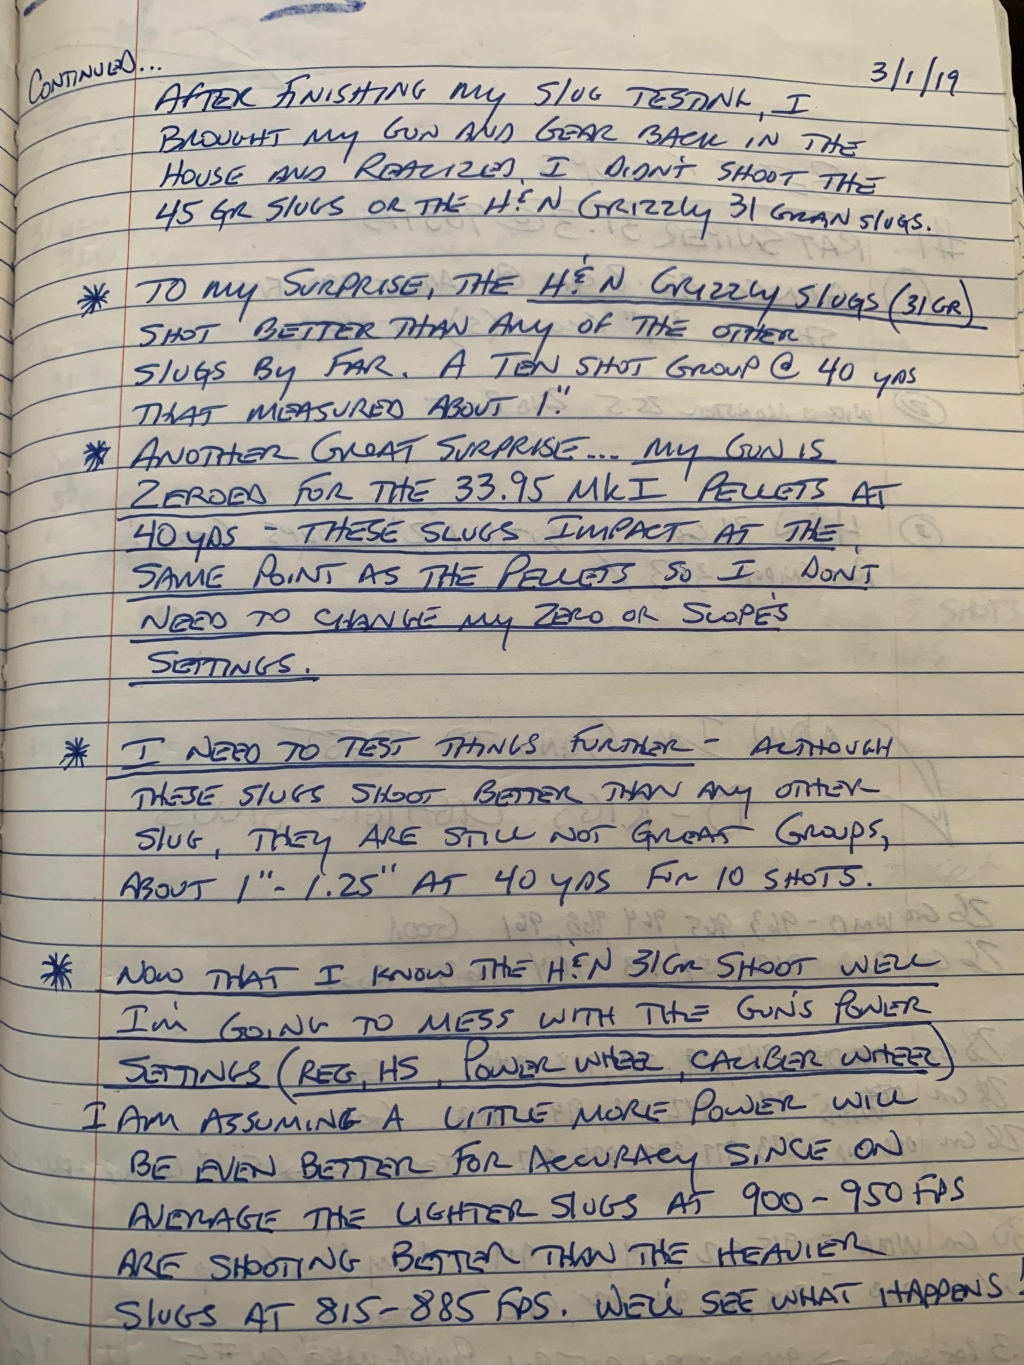 CONTINUED...
3/1/19
AFTER FINISHING MY SLUG TESTING, I
BROUGHT MY GUN AND GEAR BACK IN THE
HOUSE AND REALIZED I DIDN'T SHOOT THE
45 GR SLUGS OR THE H&N GRIZZLY 31 GRAN SLUGS.
* TO MY SURPRISE, THE H&N GRIZZLY SLUGS (31GR)
SHOT BETTER THAN ANY OF THE OTHER
SLUGS BY FAR. A TEN SHOT GROUP @ 40 YDS
THAT MEASURED ABOUT 1".
* ANOTHER GREAT SURPRISE... MY GUN IS
ZEROED FOR THE 33.95 MKI PELLETS AT
40 YDS - THESE SLUGS IMPACT AT THE
SAME POINT AS THE PELLETS SO I DON'T
NEED TO CHANGE MY ZERO OR SCOPE'S
SETTINGS.
* I NEED TO TEST THINGS FURTHER - ALTHOUGH
THESE SLUGS SHOOT BETTER THAN ANY OTHER
SLUG, THEY ARE STILL NOT GREAT GROUPS,
ABOUT 1"- 1.25" AT 40 YDS FOR 10 SHOTS.
* NOW THAT I KNOW THE H&N 31GR SHOOT WELL
I'M GOING TO MESS WITH THE GUN'S POWER
SETTINGS (REG, HS, POWER WHEEL, CALIBER WHEEL)
I AM ASSUMING A LITTLE MORE POWER WILL
BE EVEN BETTER FOR ACCURACY SINCE ON
AVERAGE THE LIGHTER SLUGS AT 900-950 FPS
ARE SHOOTING BETTER THAN THE HEAVIER
SLUGS AT 815-885 FPS. WE'LL SEE WHAT HAPPENS!